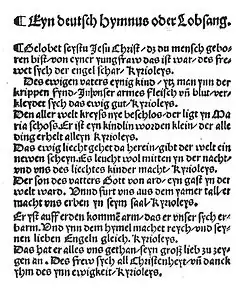 ¶ Eyn deutsch Hymnus oder Lobsang.
¶ Gelobet seystu Jesu Christ · dz du mensch gebo⸗
ren bist · von eyner yungfraw das ist war · des fre⸗
wet sych der engel schar · Kyrioleys.
Des ewigen vaters eynig kind · ytz man ynn der
krippen fynd · Jn vnser armes fleisch vñ blut · ver⸗
kleydet sych das ewig gut · Kyrioleys.
Den aller welt kreyss nye beschlos · der ligt yn Ma
ria schoss. Er ist eyn kindlin worden kleyn · der alle
ding erhelt alleyn. Kyrioleys.
Das ewig liecht gehet da hereyn · gibt der welt ein
newen scheyn. Es leucht wol mitten yn der nacht ·
vnd vns des liechtes kinder macht · Kyrioleys.
Der son des vatters Gott von ard · eyn gast yn der
welt ward. Vnnd furt vns aus dem yamer tall · er
macht vns erben yn seym saal · Kyrioleys.
Er yst auff erden kommẽ arm · das er vnser sych er⸗
barm. Vnd ynn dem hymel machet reych · vnd sey⸗
nen lieben Engeln gleich. Kyrioleys.
Das hat er alles vns gethan · seyn gross lieb zu zey⸗
gen an. Des frew sych all Christenheyt · vñ danck
yhm des ynn ewigkeit · Kyrioleys.